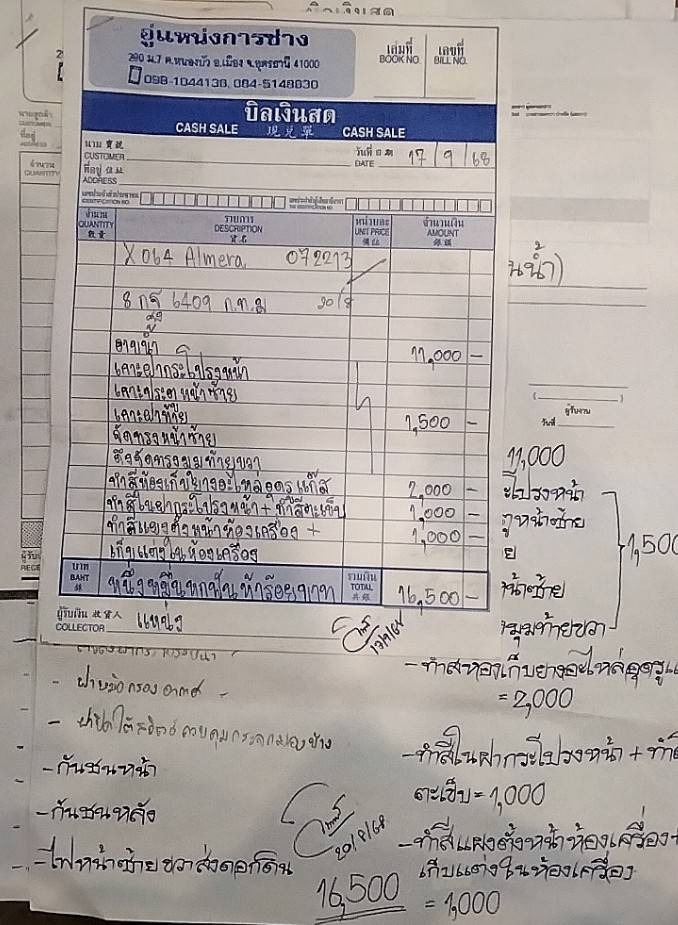 อู่แหน่งการช่าง
290 ม.7 ต.หนองบัว อ.เมือง จ.อุดรธานี 41000
098-1044136, 084-5148830
เล่มที่
BOOK NO.
เลขที่
BILL NO.
บิลเงินสด
CASH SALE 現兌單 CASH SALE
นาม
CUSTOMER
วันที่
DATE 17/9/68
ที่อยู่ 住址
ADDRESS
จำนวน
QUANTITY
รายการ
DESCRIPTION
หน่วยละ
UNIT PRICE
จำนวนเงิน
AMOUNT
X064 Almera 072213
8 กจ 6409 ก.ท.ม 20/8
อาบน้ำ 11,000 -
เคาะฝากระโปรงหน้า
เคาะประตูหน้าซ้าย
เคาะฝาท้าย 1,500 -
จัดทรงหน้าซ้าย
ดึงจัดทรงมุมท้ายขวา
ทำสีห้องเก็บยางอะไหล่อุดรูแก๊ส 2,000 -
ทำสีในฝากระโปรงหน้า + ทำสีตะเข็บ 1,000 -
ทำสีแผงตั้งหน้าห้องเครื่อง + 1,000 -
เก็บแต่งในห้องเครื่อง
บาท
BAHT
หนึ่งหมื่นหกพันห้าร้อยบาท
รวมเงิน
TOTAL
16,500 -
ผู้รับเงิน 收貨人
COLLECTOR แหน่ง
17/9/68
นน้ำ)
ผู้รับงาน
วันที่
11,000
ะโปรงหน้า
ตูหน้าซ้าย
1,500
ย
น้าซ้าย
มุมท้ายขวา
- ทำสีห้องเก็บยางอะไหล่อุดรูแ
= 2,000
- ทำสีในฝากระโปรงหน้า + ทำสี
ตะเข็บ = 1,000
- ทำสีแผงตั้งหน้าห้องเครื่อง +
เก็บแต่งในห้องเครื่อง
= 1,000
- ฝาหม้อกรองอากาศ
- กันชนหน้า
- กันชนหลัง
- ไฟหน้าซ้าย ขวา ส่งดอกดิน
20/8/68
16,500